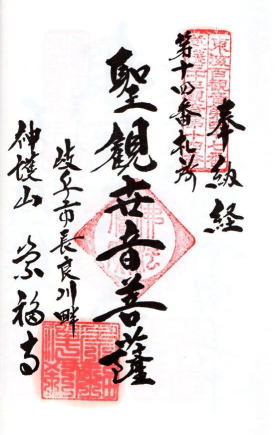 奉納経
第十四番札所
聖観世音菩薩
岐阜市長良川畔
神護山 崇福寺